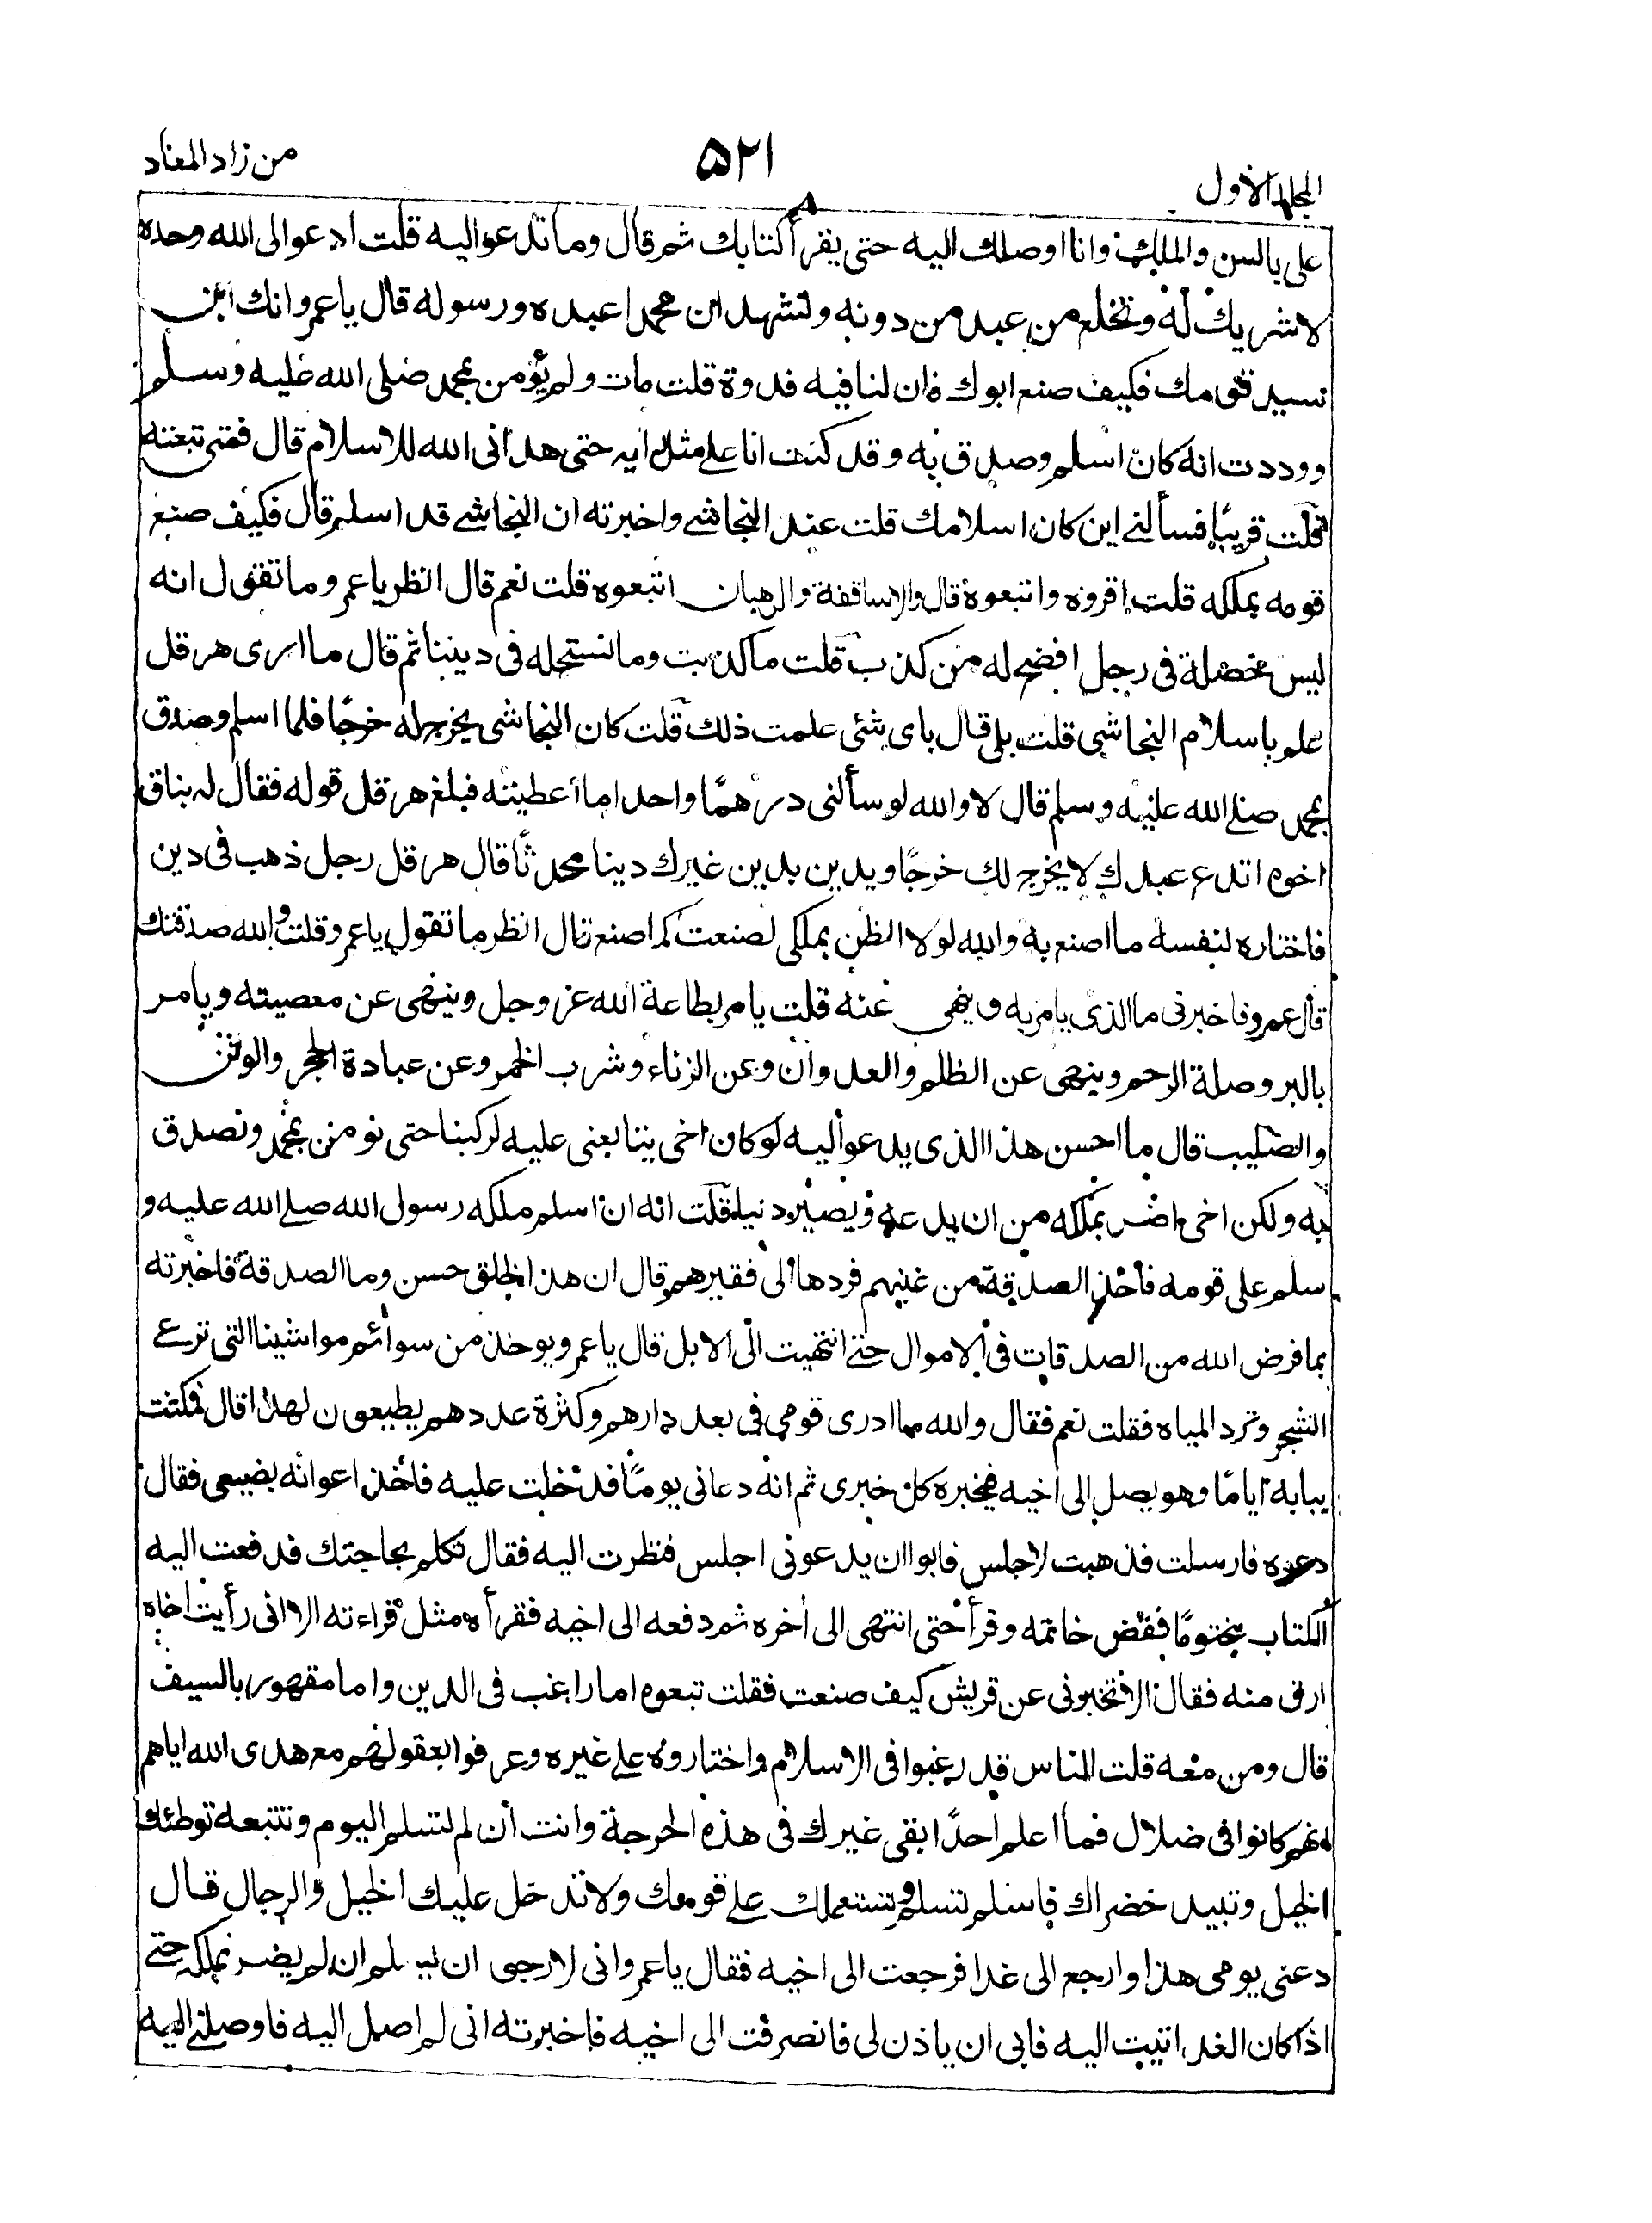 المجلد الاول
۵۲۱
من زاد المعاد
على بالسن والملك وانا اوصلك اليه حتى يقرأ كتابك ثم قال وما تدعو اليه قلت ادعو الى الله وحده
لا شريك له وتخلع من عبد من دونه وتشهد ان محمدا عبده ورسوله قال يا عمرو انك ابن
سيد قومك فكيف صنع ابوك فان لنا فيه قدوة قلت مات ولم يؤمن بمحمد صلى الله عليه وسلم
ووددت انه كان اسلم وصدق به وقد كنت انا على مثل رأيه حتى هدانى الله للاسلام قال فمتى تبعته
قلت قريبًا فسألنے اين كان اسلامك قلت عند النجاشے واخبرته ان النجاشے قد اسلم قال فكيف صنع
قومه بملكه قلت اقروه واتبعوه قال والاساقفة والرهبان اتبعوه قلت نعم قال انظر يا عمرو ما تقول انه
ليس بخصلة فى رجل افضح له من كذب قلت ما كذبت وما نستحله فى ديننا ثم قال ما ارى هرقل
علم باسلام النجاشى قلت بلى قال باى شئى علمت ذلك قلت كان النجاشى يخرج له خرجًا فلما اسلم وصدق
بمحمد صلے الله عليه وسلم قال لا والله لو سألنى درهمًا واحدا ما أعطيته فبلغ هرقل قوله فقال له يناق
اخوه اتدع عبدك لا يخرج لك خرجًا ويدين بدين غيرك دينا محدثًا قال هرقل رجل ذهب فى دين
فاختاره لنفسه ما اصنع به والله لولا الظن بملكى لصنعت كما صنع قال انظر ما تقول يا عمرو قلت والله صدقتك
قال عمرو فاخبرنى ما الذى يامر به وينهى عنه قلت يامر بطاعة الله عز وجل وينهى عن معصيته ويامر
بالبر وصلة الرحم وينهى عن الظلم والعدوان وعن الزناء وشرب الخمر وعن عبادة الحجر والوثن
والصليب قال ما احسن هذا الذى يدعو اليه لو كان اخى يتابعنى عليه لركبنا حتى نومن بمحمد ونصدق
به ولكن اخى اضر بملكه من ان يدعه ويصير دنيا قلت انه ان اسلم ملكه رسول الله صلے الله عليه و
سلم على قومه فأخذ الصدقة من غنيهم فردها الى فقيرهم قال ان هذا لخلق حسن وما الصدقة فاخبرته
بما فرض الله من الصدقات فى الاموال حتے انتهيت الى الابل قال يا عمرو يوخذ من سوائم مواشينا التى ترعے
الشجر وترد المياه فقلت نعم فقال والله ما ادرى قومى فى بعد دارهم وكثرة عددهم يطيعون لهذا قال فمكثت
ببابه اياما وهو يصل الى اخيه فيخبره كل خبرى ثم انه دعانى يومًا فدخلت عليه فاخذ اعوانه بضبعى فقال
دعوه فارسلت فذهبت لاجلس فابوا ان يدعونى اجلس فنظرت اليه فقال تكلم بحاجتك فدفعت اليه
الكتاب مختومًا ففض خاتمه وقرأ حتى انتهى الى أخره ثم دفعه الى اخيه فقرأه مثل قراءته الا انى رأيت اخاه
ارق منه فقال الا تخبرونى عن قريش كيف صنعت فقلت تبعوه اما راغب فى الدين واما مقهور بالسيف
قال ومن معه قلت الناس قد رغبوا فى الاسلام واختاروه على غيره وعرفوا بعقولهم مع هدى الله اياهم
انهم كانوا فى ضلال فما اعلم احدًا بقى غيرك فى هذه الحرجة وانت ان لم تسلم اليوم وتتبعه توطئك
الخيل وتبيد خضراك فاسلم تسلم ويستعملك على قومك ولا تدخل عليك الخيل والرجال قال
دعنى يومى هذا وارجع الى غدا فرجعت الى اخيه فقال يا عمرو انى لارجى ان يسلم ان لم يضر بملكه حتے
اذا كان الغد اتيت اليه فابى ان ياذن لى فانصرفت الى اخيه فاخبرته انى لم اصل اليه فاوصلنے اليه